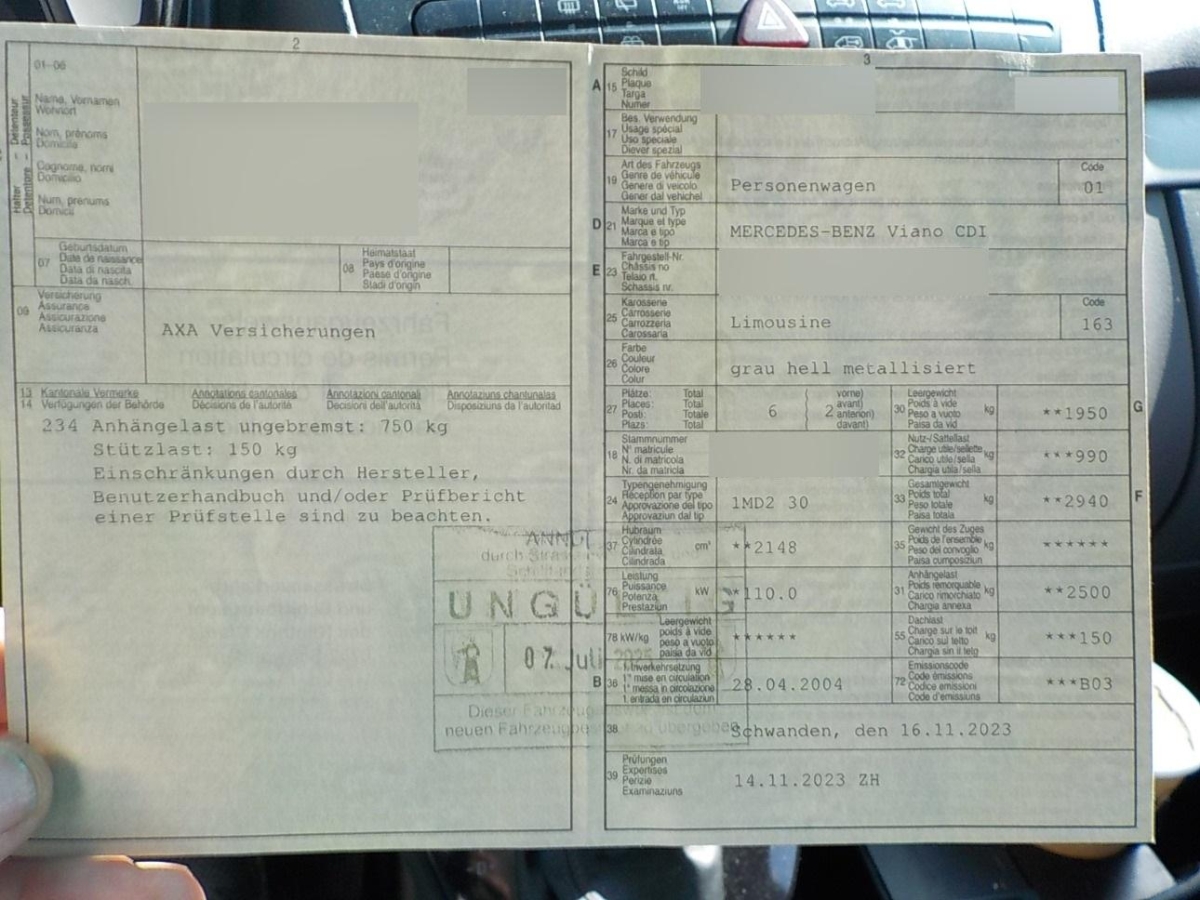 2
01-06
Halter - Détenteur
Detentore - Possessur
Name, Vornamen
Wohnort
Nom, prénoms
Domicile
Cognome, nomi
Domicilio
Num, prenums
Domicil
07
Geburtsdatum
Date de naissance
Data di nascita
Data da nasch.
08
Heimatstaat
Pays d'origine
Paese d'origine
Stadi d'origin
09
Versicherung
Assurance
Assicurazione
Assicuranza
AXA Versicherungen
13 Kantonale Vermerke Annotations cantonales Annotazioni cantonali Annotaziuns chantunalas
14 Verfügungen der Behörde Décisions de l'autorité Decisioni dell'autorità Disposiziuns da l'autoritad
234 Anhängelast ungebremst: 750 kg
Stützlast: 150 kg
Einschränkungen durch Hersteller,
Benutzerhandbuch und/oder Prüfbericht
einer Prüfstelle sind zu beachten.
07. Juli 2025
Dieser
neuen übergeben
3
A 15
Schild
Plaque
Targa
Numer
17
Bes. Verwendung
Usage spécial
Uso speciale
Diever spezial
19
Art des Fahrzeugs
Genre de véhicule
Genere di veicolo
Gener dal vehichel
Personenwagen
Code
01
D 21
Marke und Typ
Marque et type
Marca e tipo
Marca e tip
MERCEDES-BENZ Viano CDI
E 23
Fahrgestell-Nr.
Châssis no
Telaio n.
Schassis nr.
25
Karosserie
Carrosserie
Carrozzeria
Carossaria
Limousine
Code
163
26
Farbe
Couleur
Colore
Colur
grau hell metallisiert
27
Plätze: Total
Places: Total
Posti: Totale
Plazs: Total
6
2
vorne)
avant)
anteriori)
davant)
30
Leergewicht
Poids à vide
Peso a vuoto
Paisa da vid
kg
**1950
G
18
Stammnummer
N° matricule
N. di matricola
Nr. da matricla
32
Nutz-/Sattellast
Charge utile/sellette
Carico utile/sella
Chargia utila/sella
kg
***990
24
Typengenehmigung
Réception par type
Approvazione del tipo
Approvaziun dal tip
1MD2 30
33
Gesamtgewicht
Poids total
Peso totale
Paisa totala
kg
**2940
F
37
Hubraum
Cylindrée
Cilindrata
Cilindrada
cm³
**2148
35
Gewicht des Zuges
Poids de l'ensemble
Peso del convoglio
Paisa cumposiziun
kg
******
76
Leistung
Puissance
Potenza
Prestaziun
kW
*110.0
31
Anhängelast
Poids remorquable
Carico rimorchiato
Chargia annexa
kg
**2500
78 kW/kg
Leergewicht
poids à vide
peso a vuoto
paisa da vid
******
55
Dachlast
Charge sur le toit
Carico sul tetto
Chargia sin il tetg
kg
***150
B 36
1. Inverkehrsetzung
1re mise en circulation
1a messa in circolazione
1. entrada en circulaziun
28.04.2004
72
Emissionscode
Code émissions
Codice emissioni
Code d'emissiuns
***B03
38
Schwanden, den 16.11.2023
39
Prüfungen
Expertises
Perizie
Examinaziuns
14.11.2023 ZH